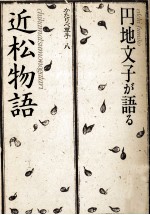 円地文子が語る
かたりべ草子・八
近松物語